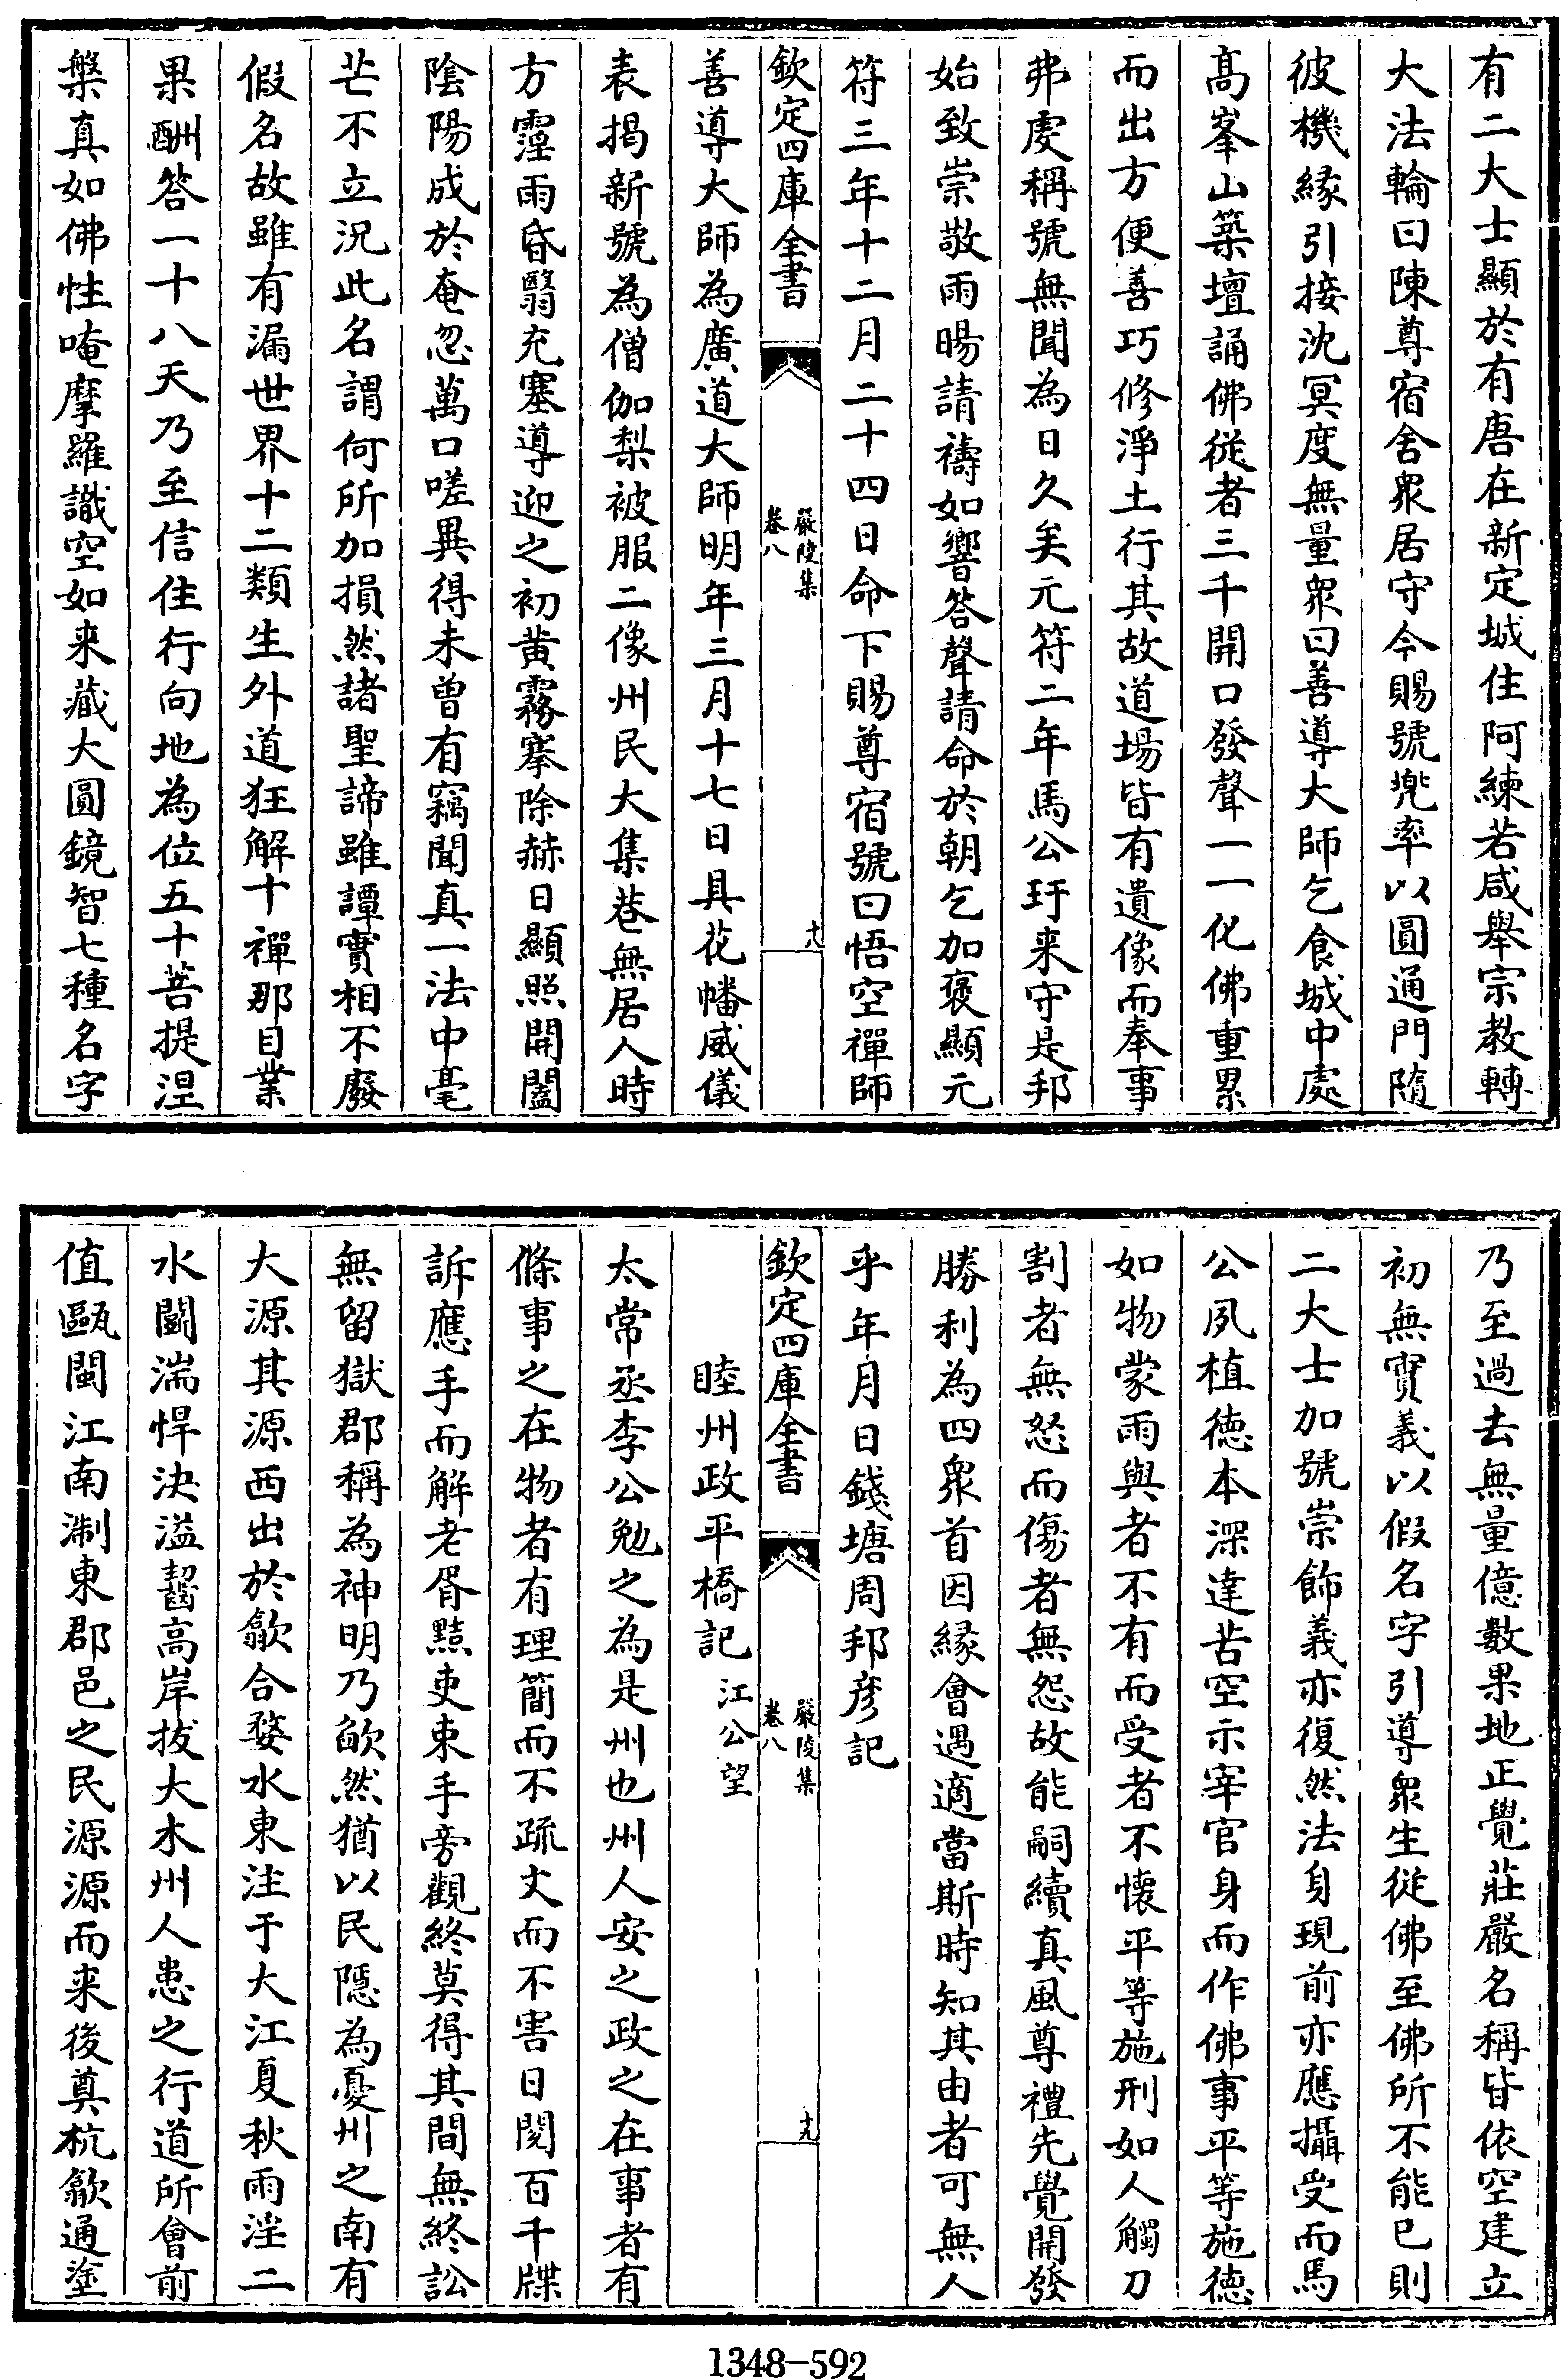 有二大士顯於有唐在新定城住阿練若咸舉宗教轉
大法輪曰陳尊宿舍衆居守今賜號兠率以圓通門隨
彼機緣引接沈冥度無量衆曰善導大師乞食城中處
髙峯山築壇誦佛從者三千開口發聲一一化佛重累
而出方便善巧修淨土行其故道場皆有遺像而奉事
弗虔稱號無聞為日久矣元符二年馬公玗来守是邦
始致崇敬雨暘請禱如響答聲請命於朝乞加褒顯元
符三年十二月二十四日命下賜尊宿號曰悟空禪師
欽定四庫全書
嚴陵集
卷八
十八
善導大師為廣道大師明年三月十七日具花幡威儀
表揭新號為僧伽梨被服二像州民大集巷無居人時
方霪雨昏翳充塞導迎之初黄霧搴除赫日顯照開闔
陰陽成於奄忽萬口嗟異得未曾有竊聞真一法中毫
芒不立況此名謂何所加損然諸聖諦雖譚實相不廢
假名故雖有漏世界十二類生外道狂解十禪那目業
果酬答一十八天乃至信住行向地為位五十菩提涅
槃真如佛性唵摩羅識空如来藏大圓鏡智七種名字
乃至過去無量億數果地正覺莊嚴名稱皆依空建立
初無實義以假名字引導衆生從佛至佛所不能已則
二大士加號崇飾義亦復然法身現前亦應攝受而馬
公夙植徳本深達苦空示宰官身而作佛事平等施徳
如物蒙雨與者不有而受者不懐平等施刑如人觸刀
割者無怒而傷者無怨故能嗣續真風尊禮先覺開發
勝利為四衆首因緣會遇適當斯時知其由者可無人
乎年月日錢塘周邦彦記
欽定四庫全書
嚴陵集
卷八
十九
睦州政平橋記 江公望
太常丞李公勉之為是州也州人安之政之在事者有
條事之在物者有理簡而不疏丈而不害日閱百千牒
訴應手而解老胥黠吏束手旁觀終莫得其間無終訟
無留獄郡稱為神明乃欿然猶以民隱為憂州之南有
大源其源西出於歙合婺水東注于大江夏秋雨淫二
水鬬湍悍決溢齧高岸拔大木州人患之行道所會前
值甌閩江南淛東郡邑之民源源而来後奠杭歙通塗
1348-592